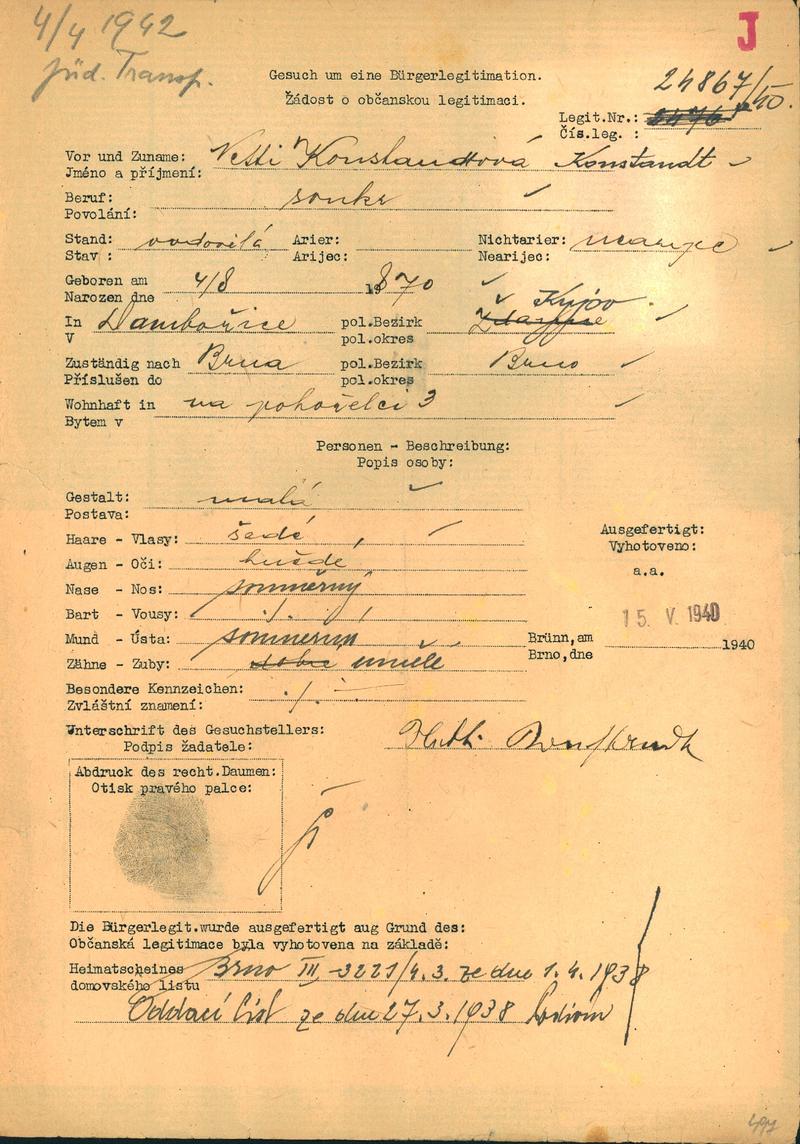 4/4 1942
J
jüd. Transp.
Gesuch um eine Bürgerlegitimation.
Žádost o občanskou legitimaci.
24867/40.
Legit.Nr.:
Čís.leg. :
Vor und Zuname: Netti Konstandtová Konstandt
Jméno a příjmení:
Beruf: soukr
Povolání:
Stand: vdovělá Arier: Nichtarier: nearijec
Stav : Arijec: Nearijec:
Geboren am 4/8 1870
Narozen dne
Kyjov
In Dambořice pol.Bezirk Ždánice
V pol.okres
Zuständig nach Brna pol.Bezirk Brno
Příslušen do pol.okres
Wohnhaft in na pohořelci 3
Bytem v
Personen - Beschreibung:
Popis osoby:
Gestalt: malá
Postava:
Haare - Vlasy: šedé
Augen - Oči: hnědé
Nase - Nos: souměrný
Bart - Vousy: ./.
Mund - Ústa: souměrná
Zähne - Zuby: dobré umělé
Besondere Kennzeichen: ./.
Zvláštní znamení:
Ausgefertigt:
Vyhotoveno:
a.a.
15. V. 1940
Brünn,am 1940
Brno,dne
Unterschrift des Gesuchstellers: Netti Konstandt
Podpis žadatele:
Abdruck des recht.Daumen:
Otisk pravého palce:
Die Bürgerlegit.wurde ausgefertigt aug Grund des:
Občanská legitimace byla vyhotovena na základě:
Heimatscheines Brno III, -3221/4.3. ze dne 1.4.1938
domovského listu
Oddací list ze dne 27.3.1938
491